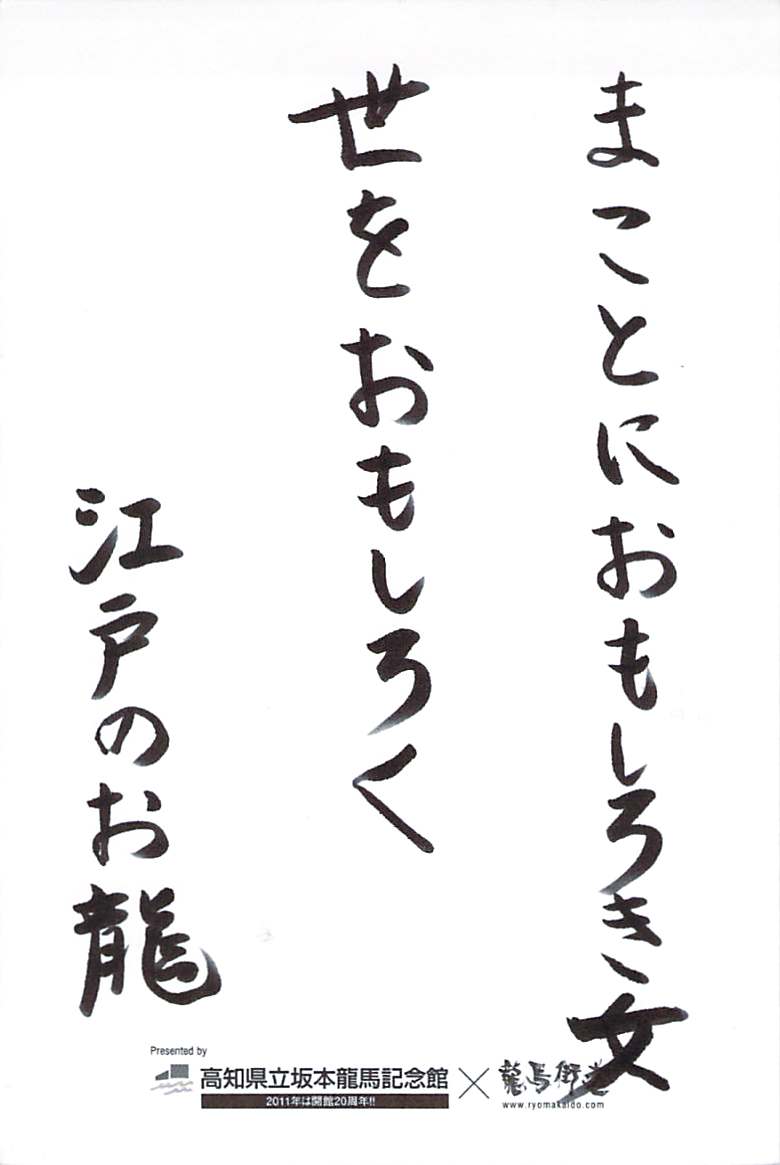 まことにおもしろき女
世をおもしろく
江戸のお龍
Presented by
高知県立坂本龍馬記念館 × 龍馬街道
2011年は開館20周年!!
www.ryomakaido.com